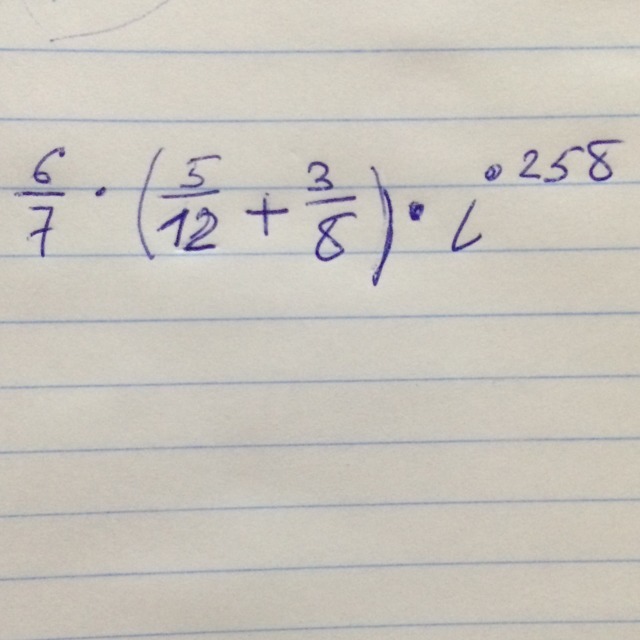 6/7 · (5/12 + 3/8) · i^258